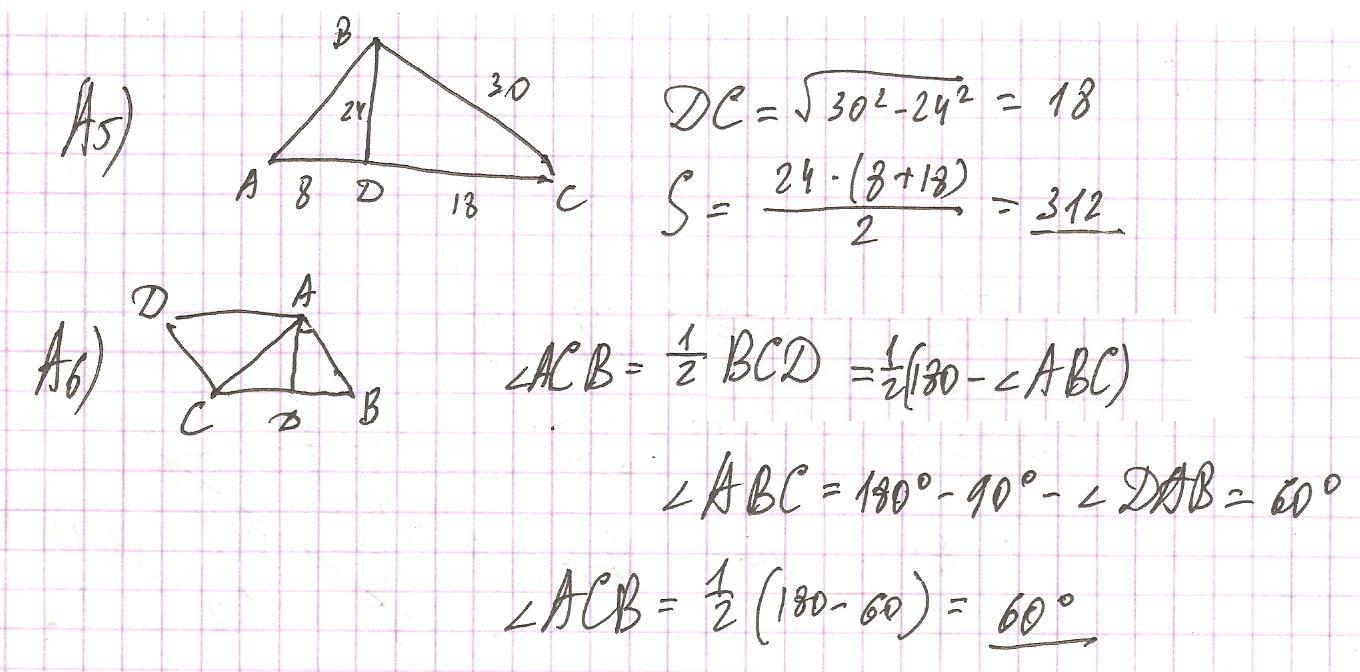 A5)
B
30
24
A 8 D 18 C
DC = √30² - 24² = 18
S = 24 · (8 + 18) / 2 = 312
A6)
D A
C D B
∠ACB = 1/2 BCD = 1/2(180 - ∠ABC)
∠ABC = 180° - 90° - ∠DAB = 60°
∠ACB = 1/2 (180 - 60) = 60°